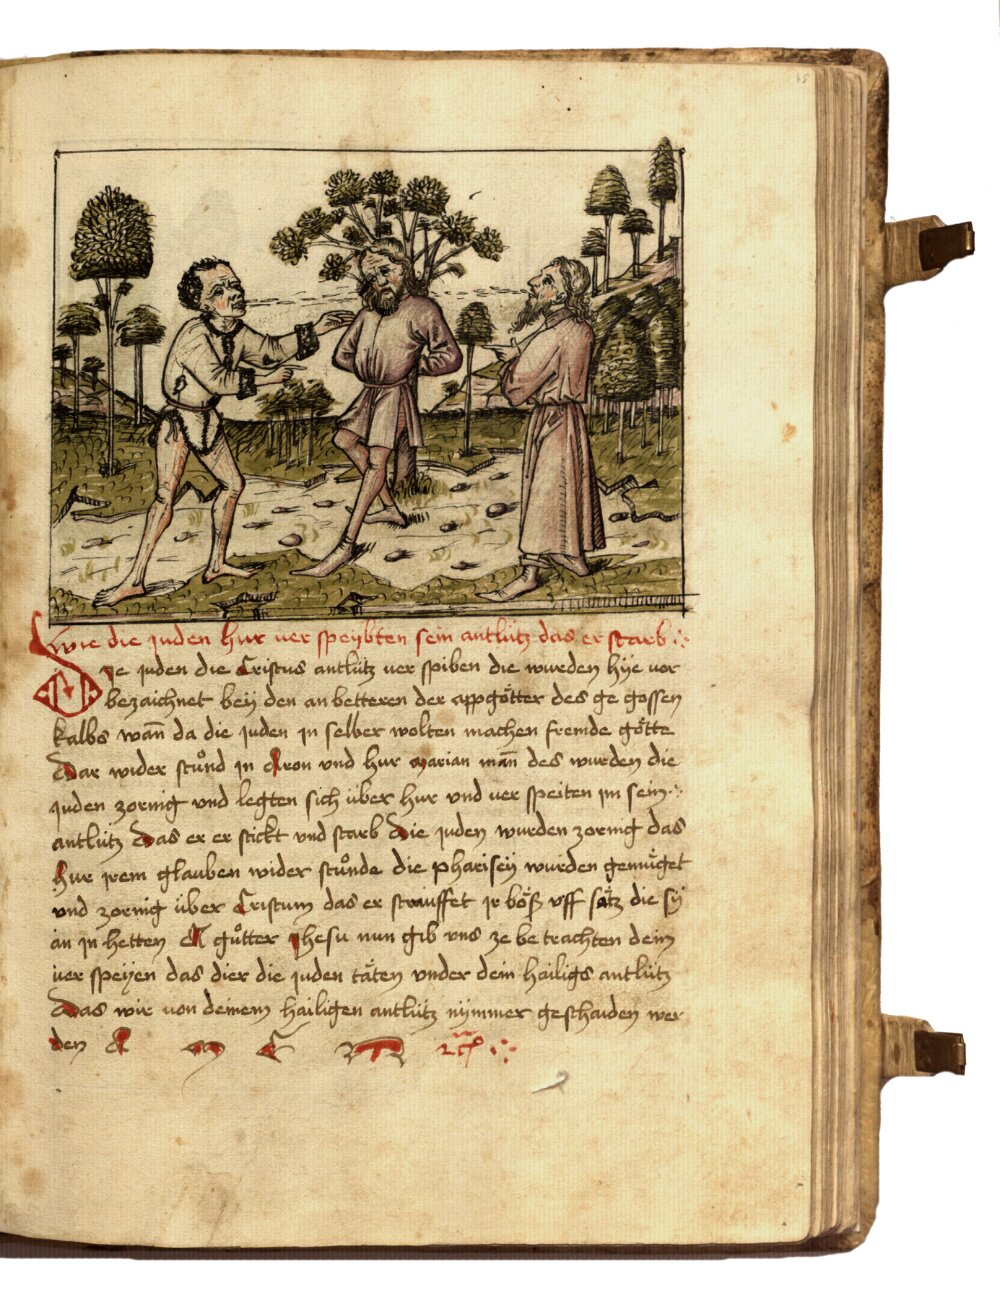 wie die juden hur ver speybten sein antlütz das er starb
Die juden die Cristus antlütz ver spiben die wurden hye vor
bezaichnet bey den an betteren der appgötter des ge gossen
kalbs wan̄ da die juden in selber wolten machen fremde götte
Dar wider stůnd in Aron vnd hur marian man̄ des wurden die
juden zornig vnd legten sich über hur vnd ver speiten im sein
antlütz Das er er stickt vnd starb Die juden wurden zornig das
hur irem glauben wider stůnde die pharisey wurden gemüget
vnd zornig über Cristum das er strauffet ir böß vff sätz die sy
an in hetten A gůtter jhesu nun gib vns ze be trachten dein
ver speyen das dier die juden täten vnder dein hailigs antlütz
Das wir von deinem hailigen antlütz nymmer geschaiden wer
den A M E N